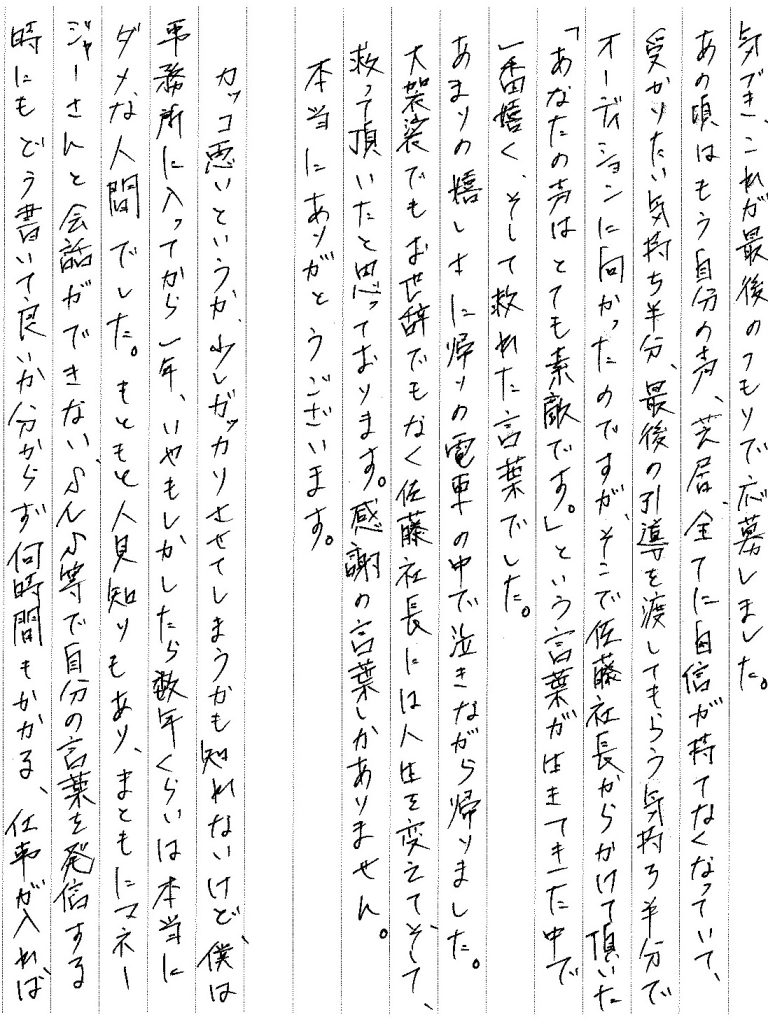 気づき、これが最後のつもりで応募しました。
あの頃はもう自分の声、芝居、全てに自信が持てなくなっていて、
受かりたい気持ち半分、最後の引導を渡してもらう気持ち半分で
オーディションに向かったのですが、そこで佐藤社長からかけて頂いた
「あなたの声はとても素敵です。」という言葉が生きてきた中で
一番嬉く、そして救れた言葉でした。
あまりの嬉しさに帰りの電車の中で泣きながら帰りました。
大袈裟でもお世辞でもなく佐藤社長には人生を変えて、そして、
救って頂いたと思っております。感謝の言葉しかありません。
本当にありがとうございます。
カッコ悪いというか、少しガッカリさせてしまうかも知れないけど、僕は
事務所に入ってから一年、いやもしかしたら数年くらいは本当に
ダメな人間でした。もともと人見知りもあり、まともにマネー
ジャーさんと会話ができない、SNS等で自分の言葉を発信する
時にもどう書いて良いか分からず何時間もかかる、仕事が入れば